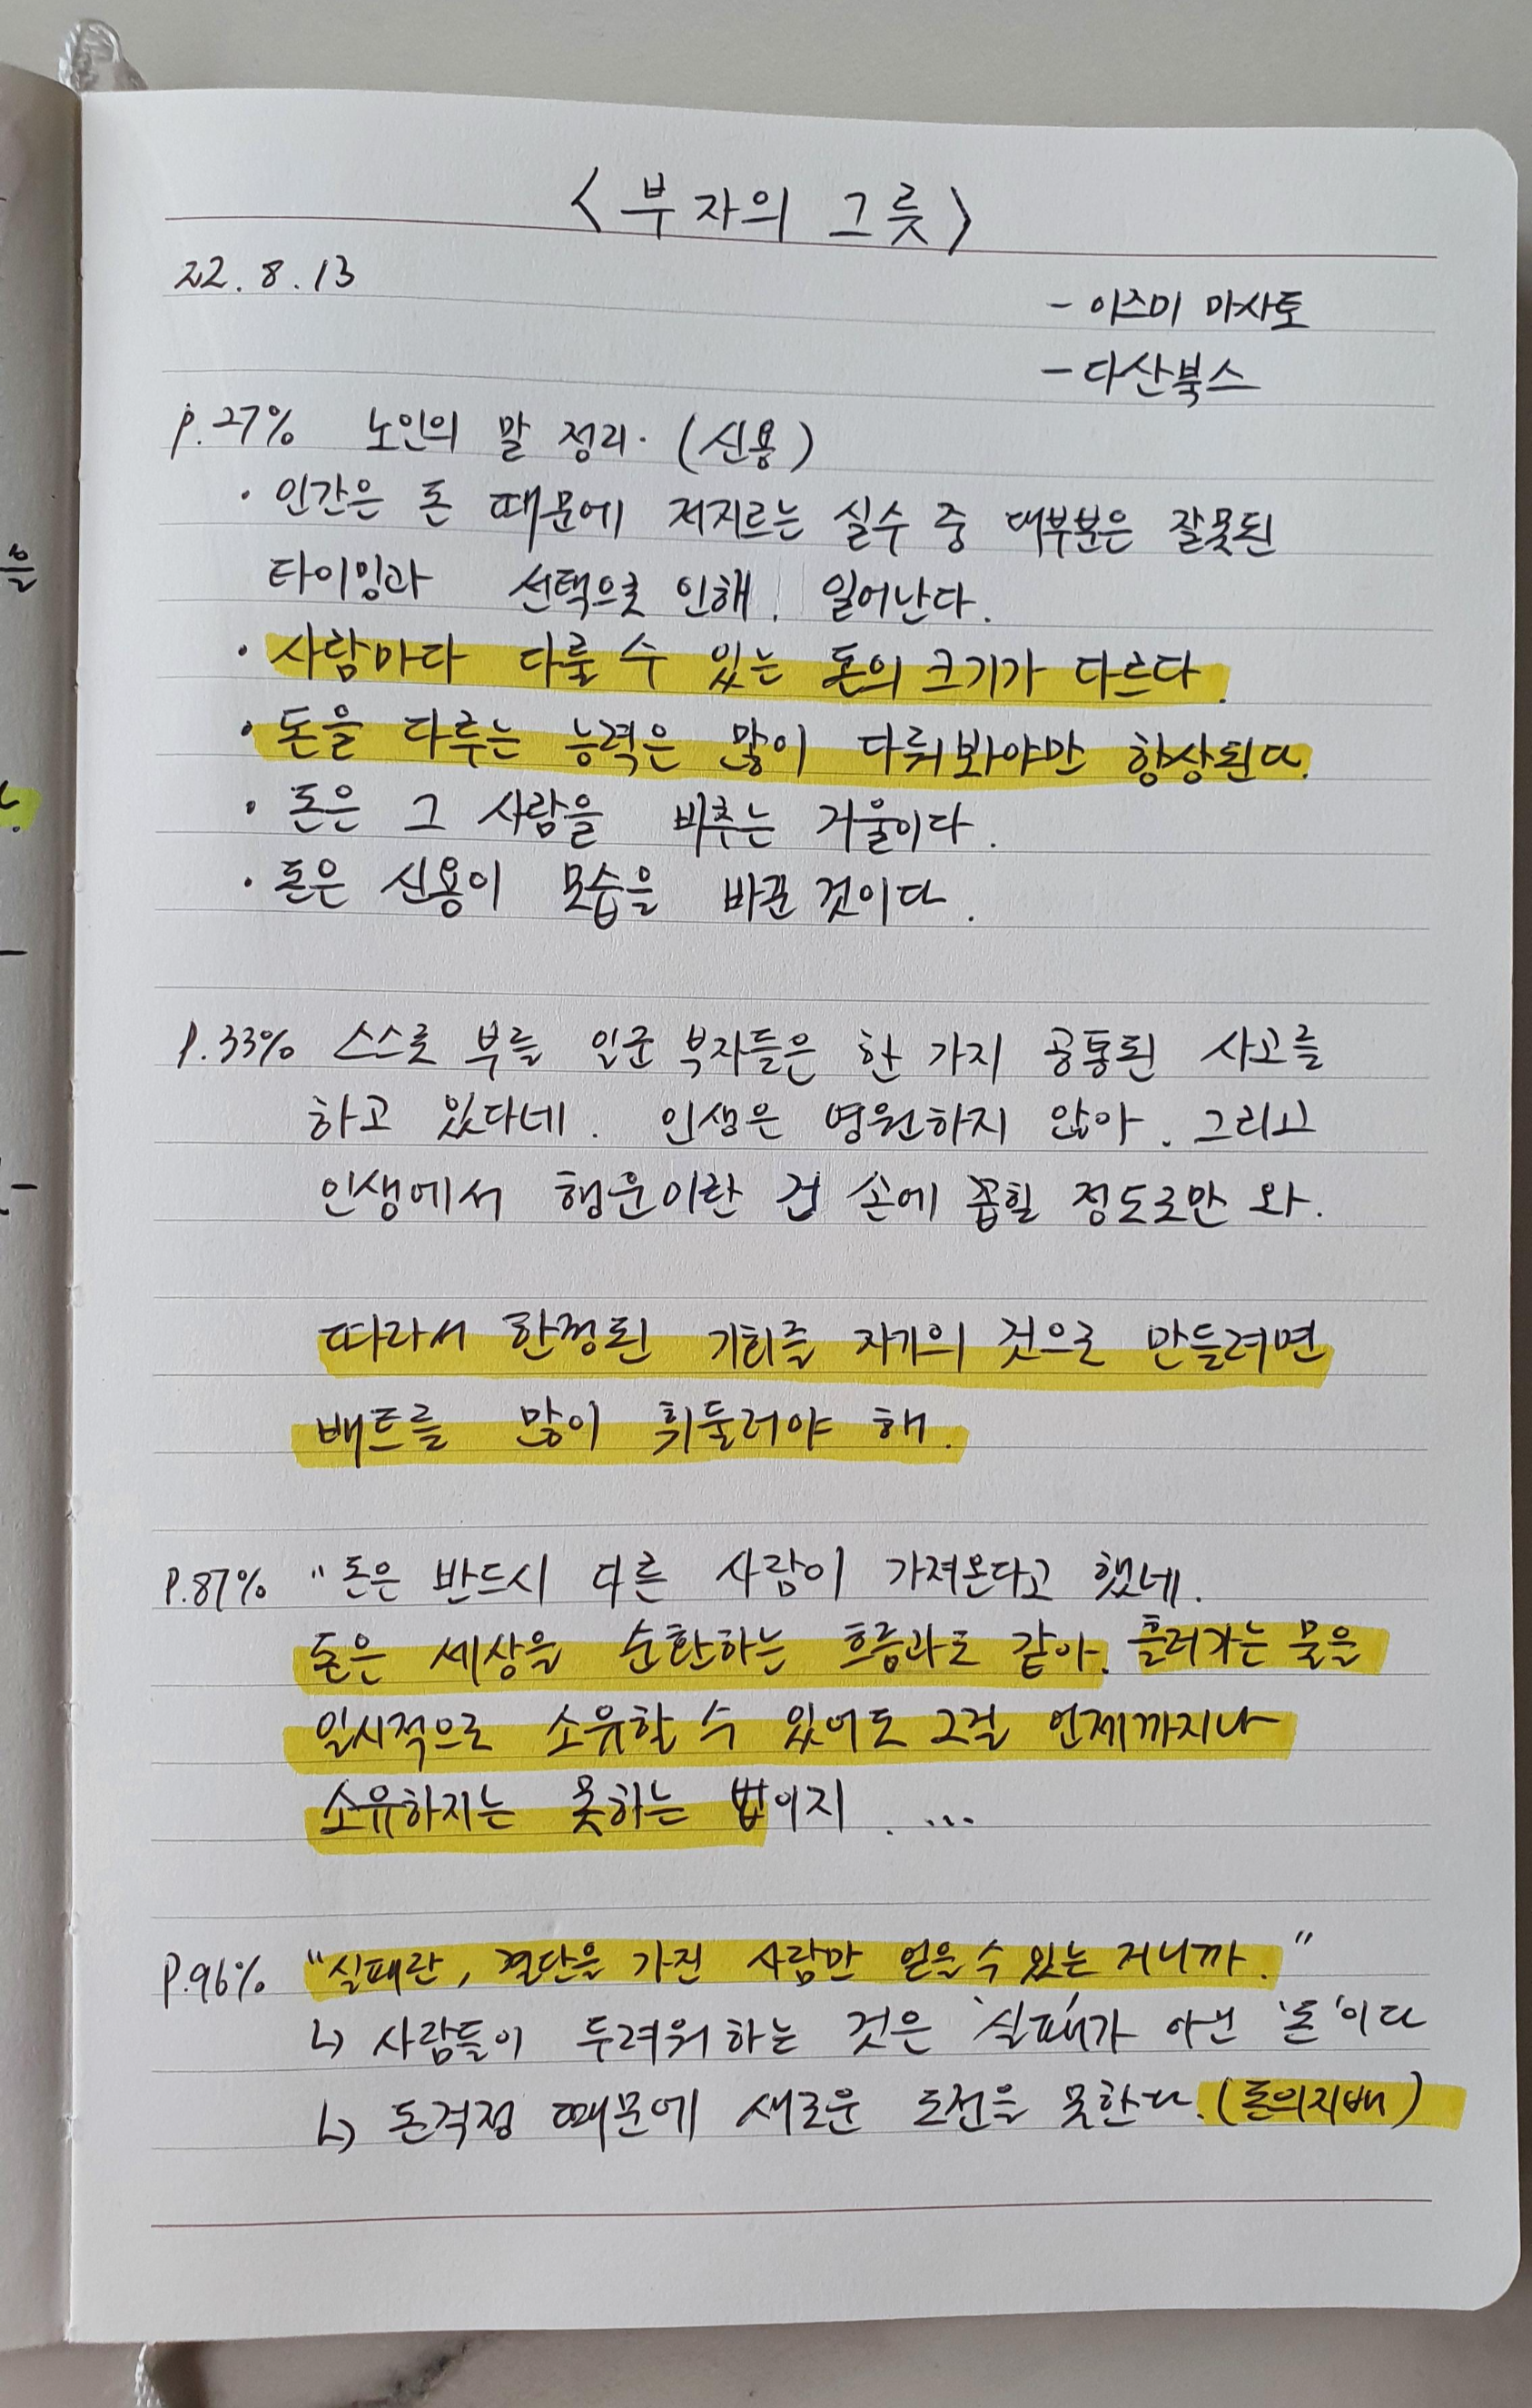 <부자의 그릇>
22. 8. 13
- 이즈미 마사토
- 다산북스
p.27% 노인의 말 정리. (신용)
· 인간은 돈 때문에 저지르는 실수 중 대부분은 잘못된
타이밍과 선택으로 인해. 일어난다.
· 사람마다 다룰 수 있는 돈의 크기가 다르다.
· 돈을 다루는 능력은 많이 다뤄봐야만 향상된다.
· 돈은 그 사람을 비추는 거울이다.
· 돈은 신용이 모습을 바꾼 것이다.
P.33% 스스로 부를 일군 부자들은 한 가지 공통된 사고를
하고 있다네. 인생은 영원하지 않아. 그리고
인생에서 행운이란 건 손에 꼽힐 정도로만 와.
따라서 한정된 기회를 자기의 것으로 만들려면
배트를 많이 휘둘러야 해.
P.87% "돈은 반드시 다른 사람이 가져온다고 했네.
돈은 세상을 순환하는 흐름과도 같아. 흘러가는 물을
일시적으로 소유할 수 있어도 그걸 언제까지나
소유하지는 못하는 법이지. ...
P.96% "실패란, 결단을 가진 사람만 얻을 수 있는 거니까."
↳ 사람들이 두려워하는 것은 '실패'가 아닌 '돈'이다
↳ 돈걱정 때문에 새로운 도전을 못한다. (돈의지배)
을